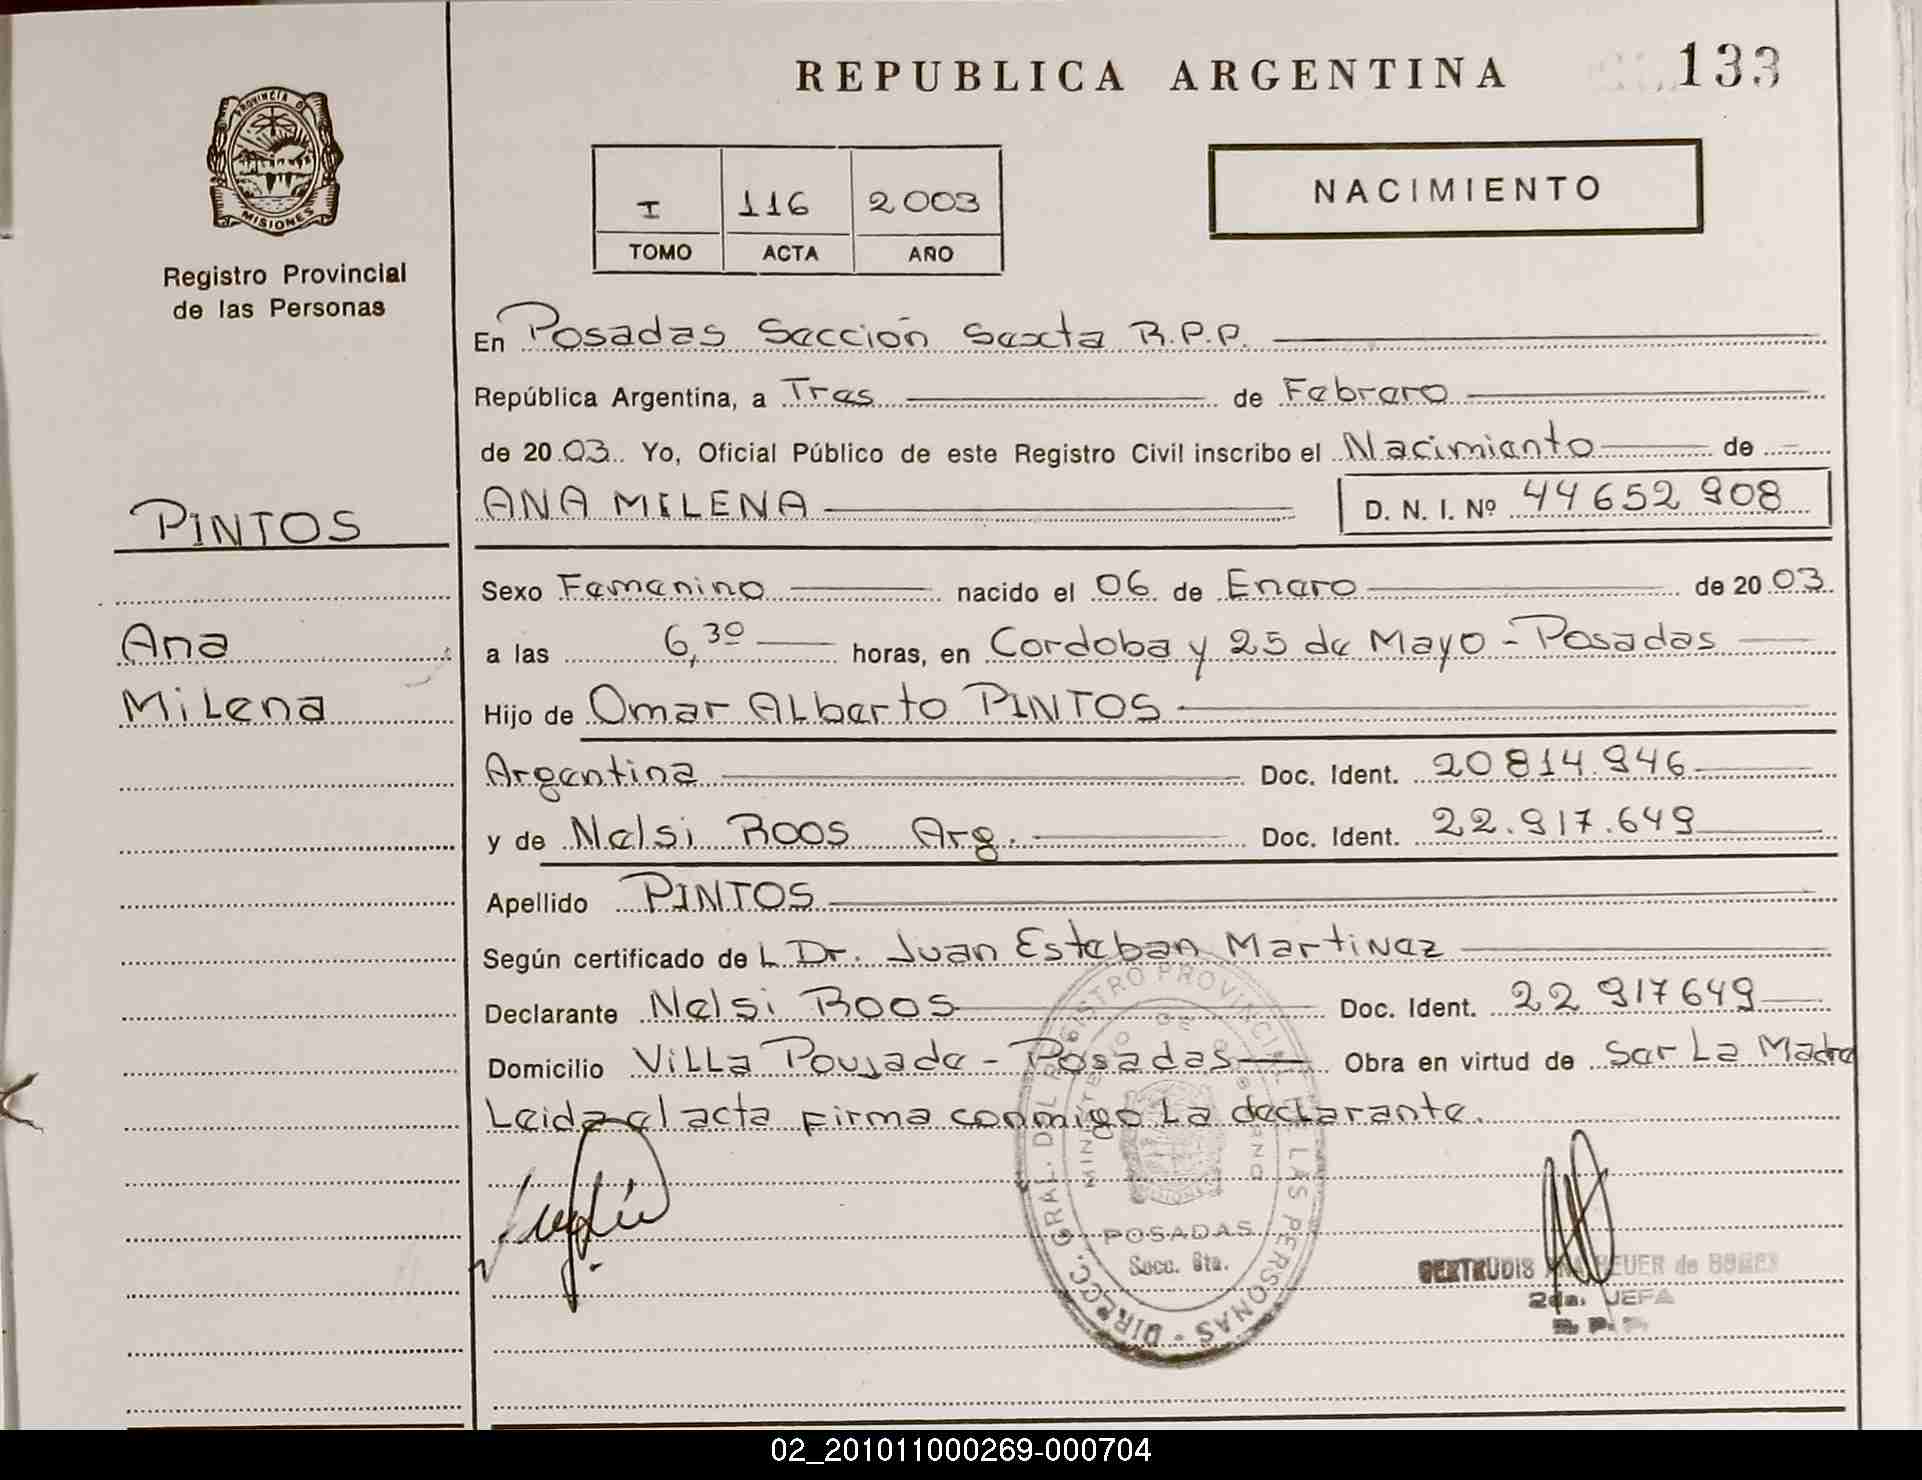 REPUBLICA ARGENTINA
133
PROVINCIA D
MISIONES
Registro Provincial
de las Personas
I 116 2003
TOMO ACTA AÑO
NACIMIENTO
En Posadas Sección Sexta R.P.P.
República Argentina, a Tres de Febrero
de 20 03 Yo, Oficial Público de este Registro Civil inscribo el Nacimiento de
PINTOS
ANA MILENA D. N. I. Nº 44652908
Sexo Femenino nacido el 06 de Enero de 20 03
Ana
a las 6,30 horas, en Cordoba y 25 de Mayo - Posadas
Milena
Hijo de Omar Alberto PINTOS
Argentina Doc. Ident. 20814.946
y de Nelsi Roos Arg. Doc. Ident. 22.917.649
Apellido PINTOS
Según certificado de L Dr. Juan Esteban Martinez
Declarante Nelsi Roos Doc. Ident. 22 917649
Domicilio Villa Poujade - Posadas Obra en virtud de ser La Madre
Leida el acta firma conmigo La declarante.
DIRECC. GRAL. DEL REGISTRO PROVINCIAL DE LAS PERSONAS
POSADAS
Secc. 6ta.
GERTRUDIS
2da. JEFA
R. P. P.
02_201011000269-000704